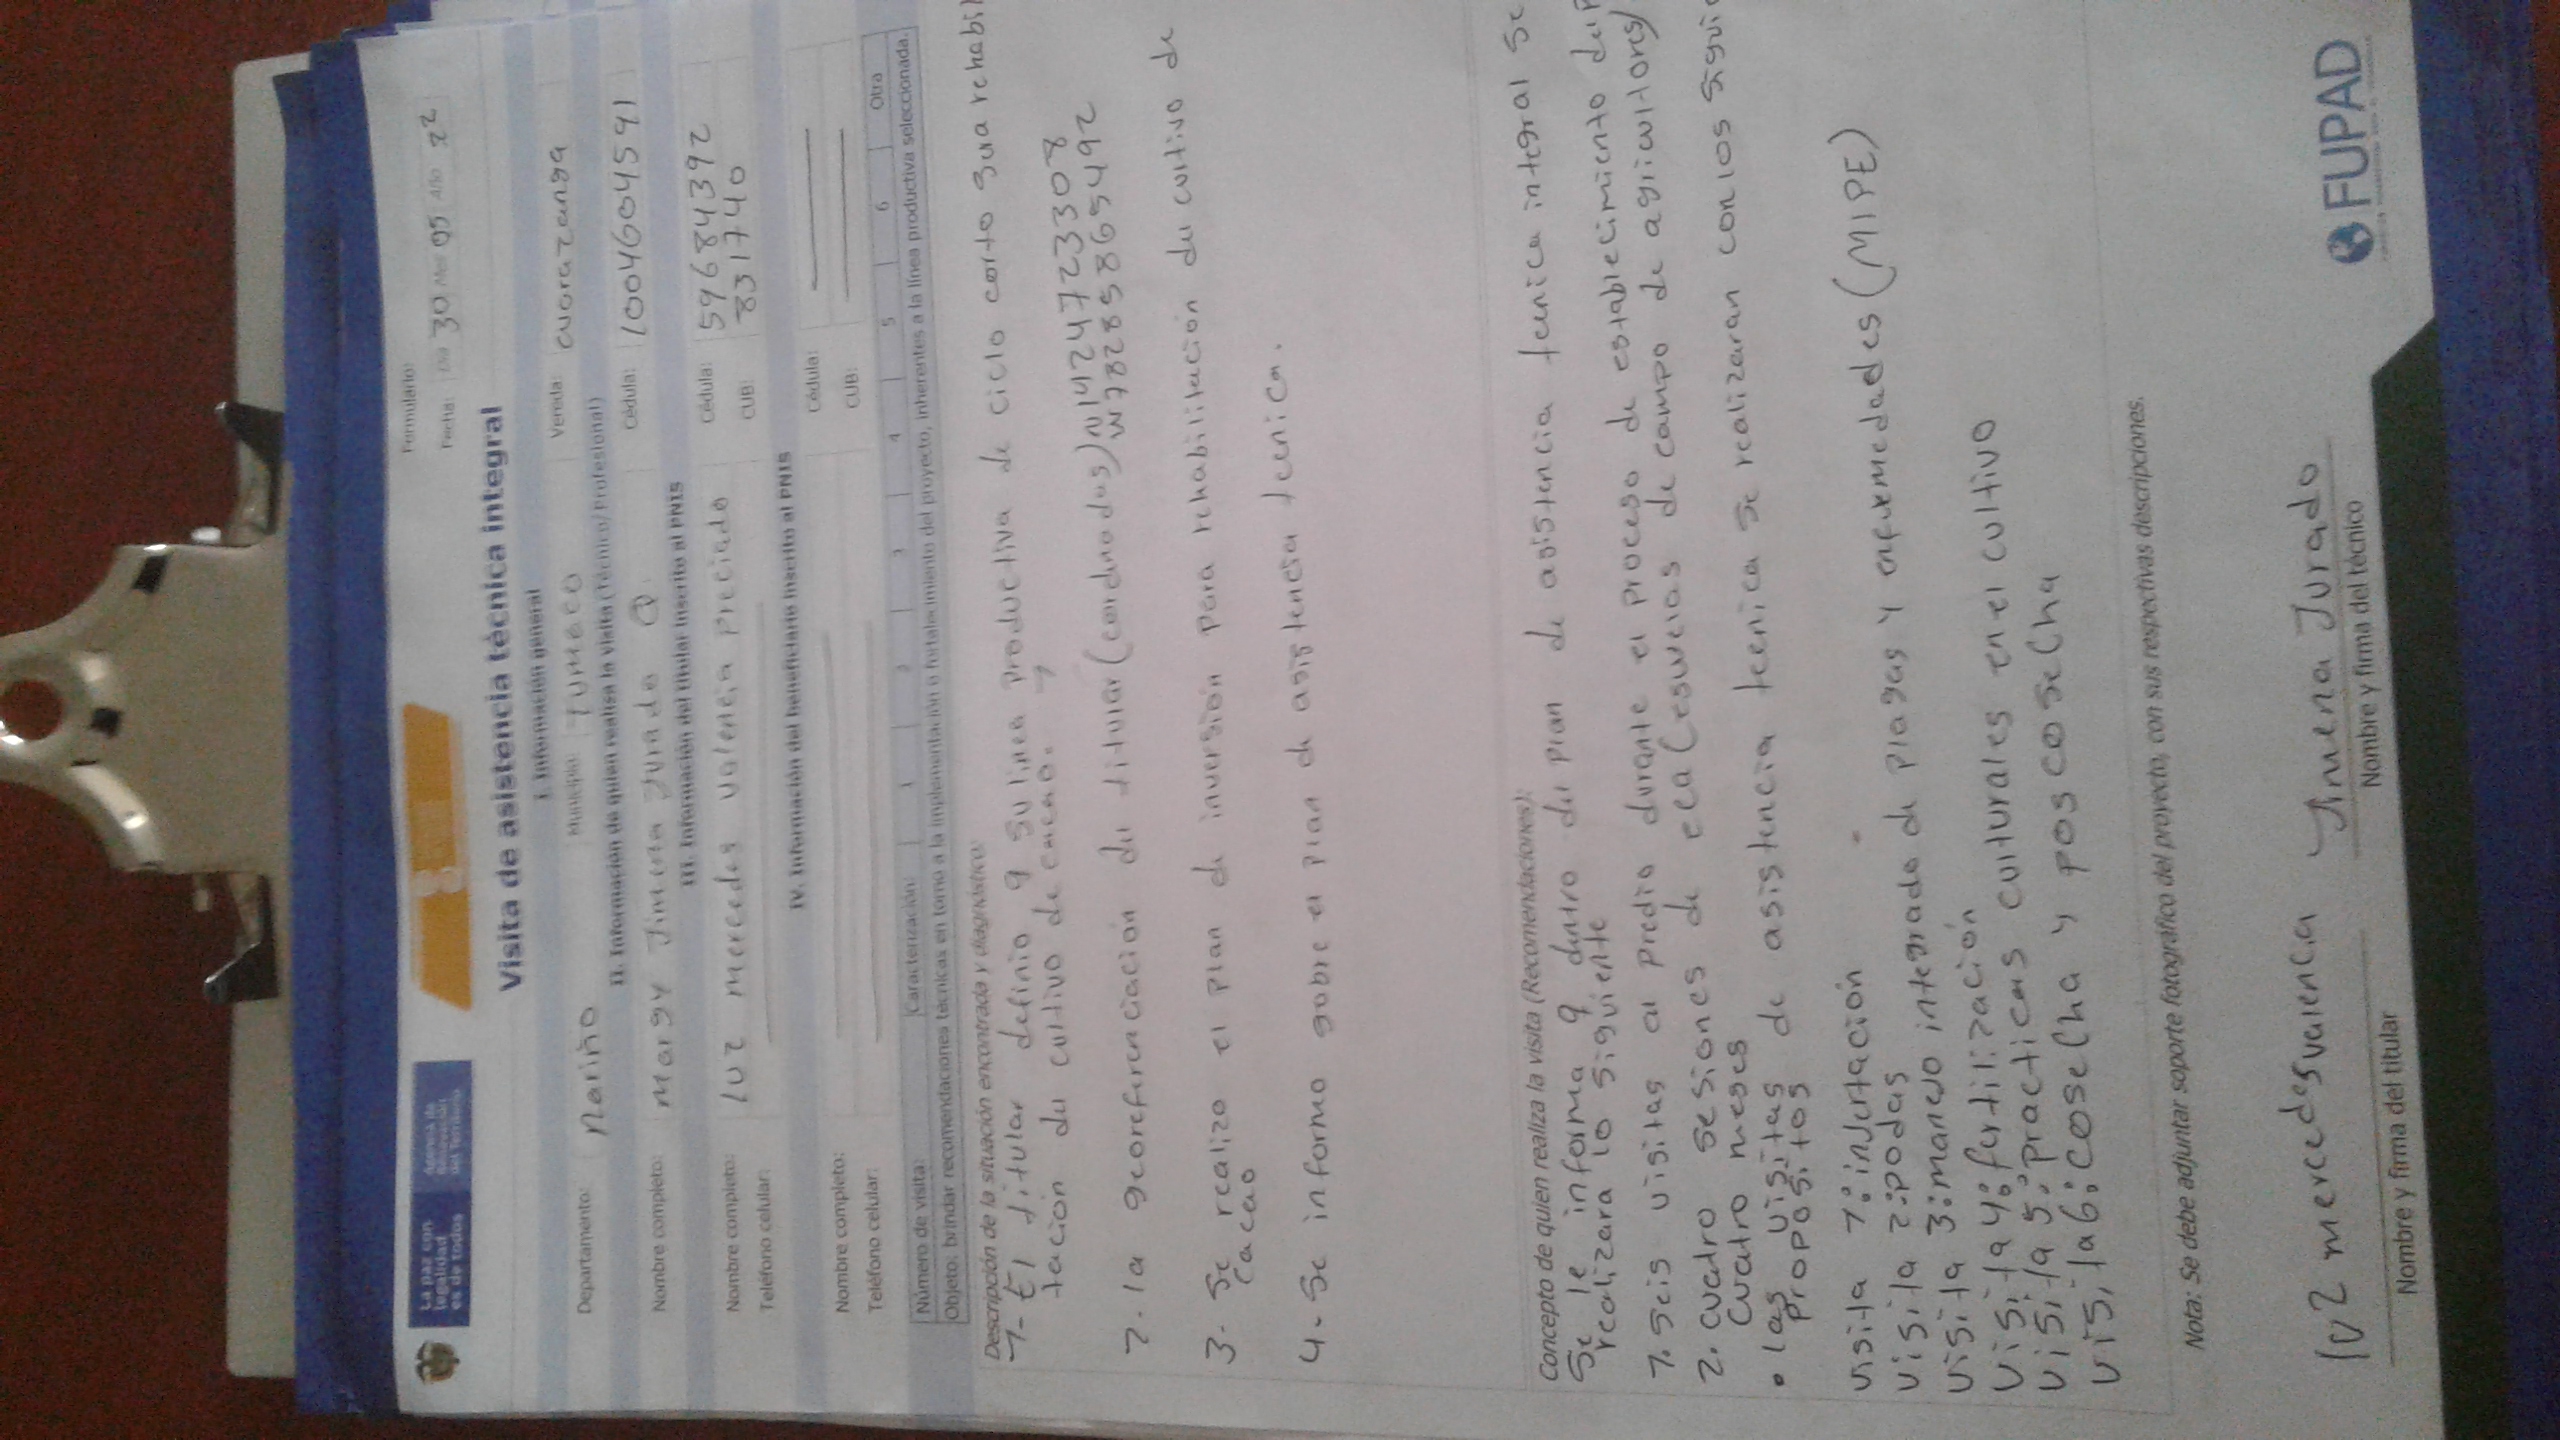 La paz con legalidad es de todos
Agencia de Renovación del Territorio
Formulario:
Fecha: Día 30 Mes 05 Año 22
Visita de asistencia técnica integral
I. Información general
Departamento: Nariño Municipio: Tumaco Vereda: cuarazanga
II. Información de quien realiza la visita (Técnico/Profesional)
Nombre completo: Margy Jimena Jurado Q. Cédula: 1004604591
III. Información del titular inscrito al PNIS
Nombre completo: luz mercedes valencia preciado Cédula: 59684392
Teléfono celular: CUB: 831740
IV. Información del beneficiario inscrito al PNIS
Nombre completo: Cédula:
Teléfono celular: CUB:
Número de visita: Caracterización: 1 2 3 4 5 6 Otra
Objeto: brindar recomendaciones técnicas en torno a la implementación o fortalecimiento del proyecto, inherentes a la línea productiva seleccionada.
Descripción de la situación encontrada y diagnóstico:
1- El titular definio q su linea productiva de ciclo corto sura rehabili
tación del cultivo de cacao.
2. la georeferenciación del titular (cordenadas) N1424723308
W78285865492
3. Se realizo el plan de inversión para rehabilitación del cultivo de
cacao
4. Se informo sobre el plan de asistencia tecnica.
Concepto de quien realiza la visita (Recomendaciones):
Se le informa q dentro del plan de asistencia tecnica integral se
realizara lo siguiente
1. seis visitas al predio durante el proceso de establecimiento del P
2. cuatro sesiones de eca (escuelas de campo de agricultores)
cuatro meses
• las visitas de asistencia tecnica se realizaran con los siguie
propositos
visita 1: injertación
visita 2: podas
visita 3: manejo integrado de plagas y enfermedades (MIPE)
visita 4: fertilización
visita 5: practicas culturales en el cultivo
visita 6: cosecha y poscosecha
Nota: Se debe adjuntar soporte fotográfico del proyecto, con sus respectivas descripciones.
luz mercedes valencia Jimena Jurado
Nombre y firma del titular Nombre y firma del técnico
FUPAD